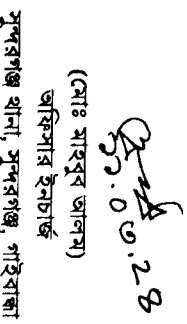 ২১.০৩.২৪
(মোঃ মাহবুব আলম)
অফিসার ইনচার্জ
সুন্দরগঞ্জ থানা, সুন্দরগঞ্জ, গাইবান্ধা